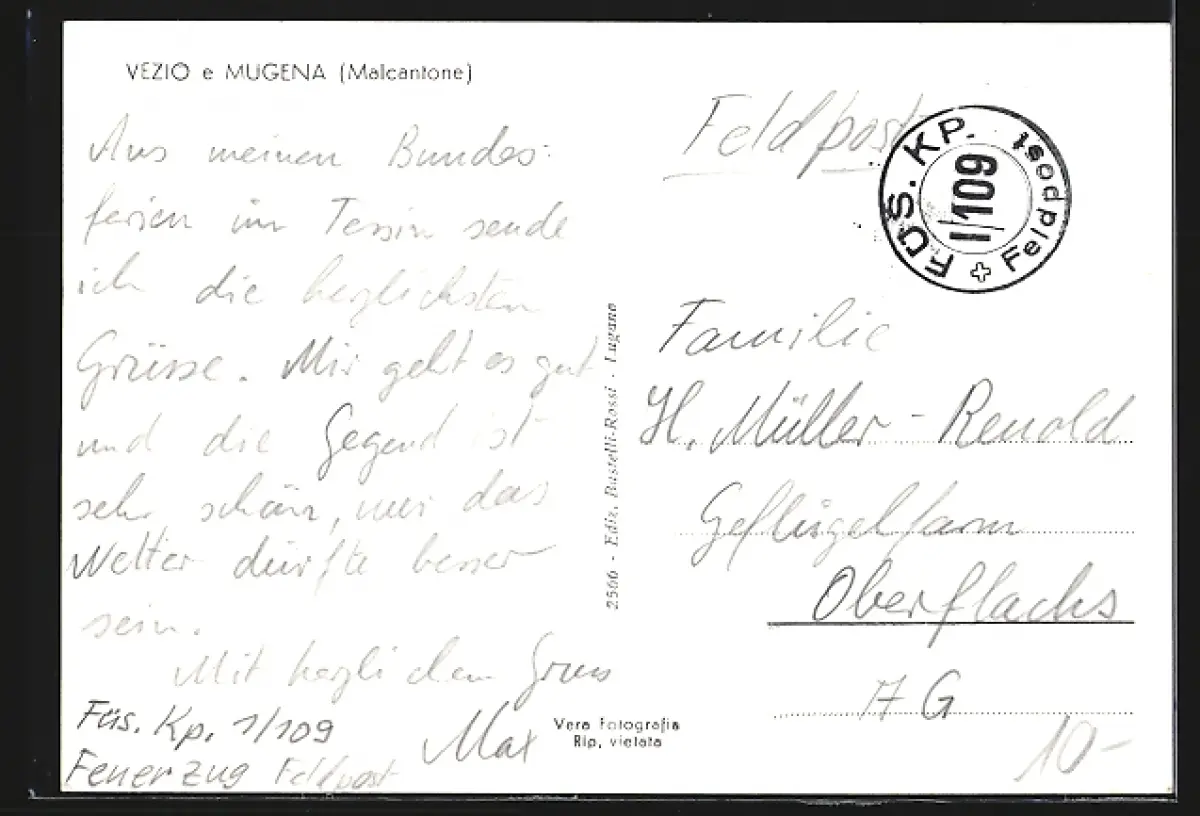 VEZIO e MUGENA (Malcantone)
Aus meinen Bundes-
ferien im Tessin sende
ich die herzlichsten
Grüsse. Mir geht es gut
und die Gegend ist
sehr schön, nur das
Wetter dürfte besser
sein.
Mit herzlichem Gruss
Max
Füs. Kp. 1/109
Feuerzug Feldpost
2566 - Ediz. Bustelli-Rossi - Lugano
Vera Fotografia
Rip. vietata
Feldpost
FÜS. KP. I/109 Feldpost
Familie
H. Müller-Renold
Geflügelfarm
Oberflachs
AG
10-